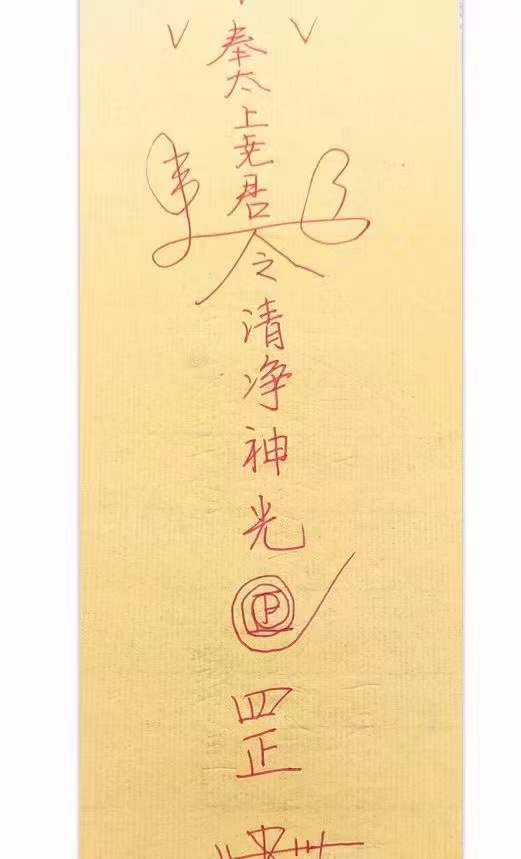 奉太上老君令清净神光罡